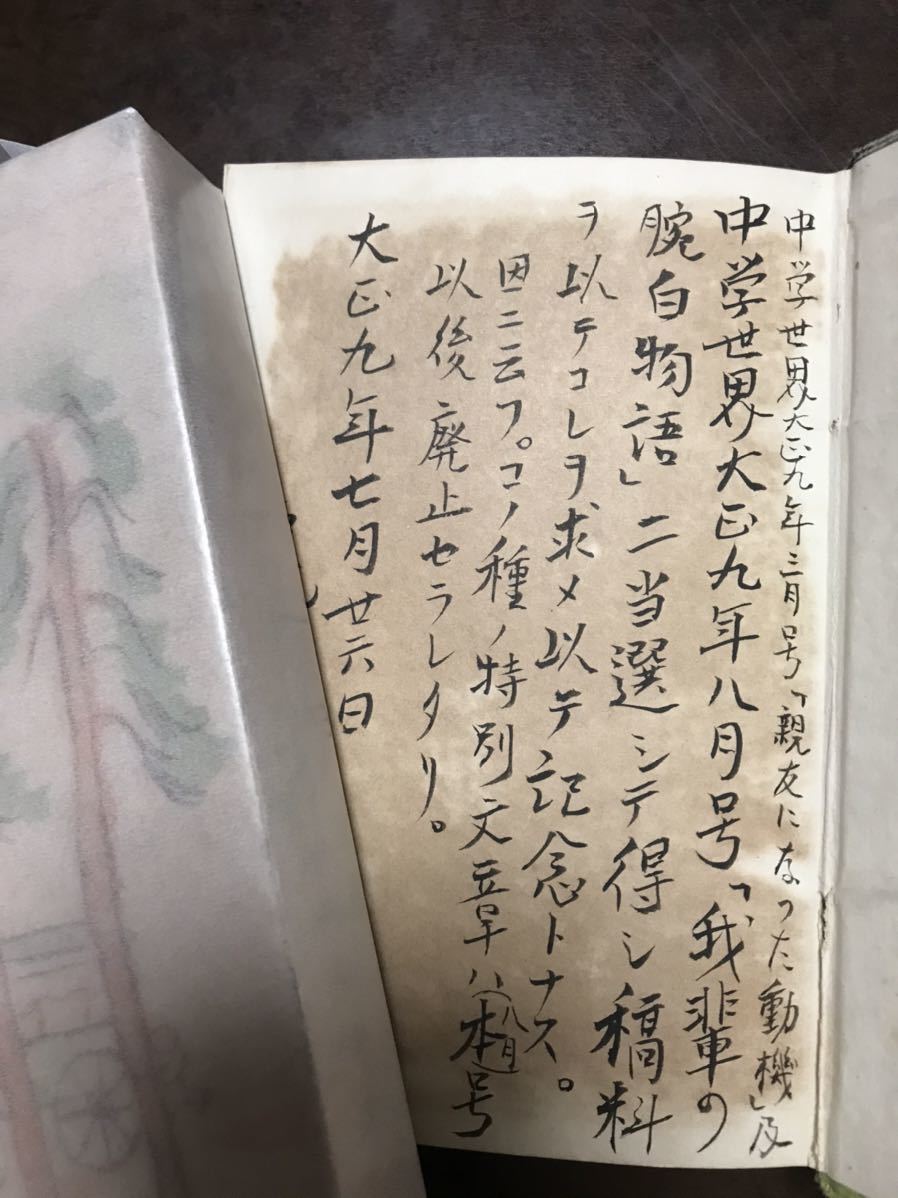 中学世界大正九年三月号「親友になつた動機」及
中学世界大正九年八月号「我輩の
腕白物語」ニ当選シテ得シ稿料
ヲ以テコレヲ求メ以テ記念トナス。
因ニ云フ。コノ種ノ特別文章ハ本(八月)号
以後廃止セラレタリ。
大正九年七月廿六日